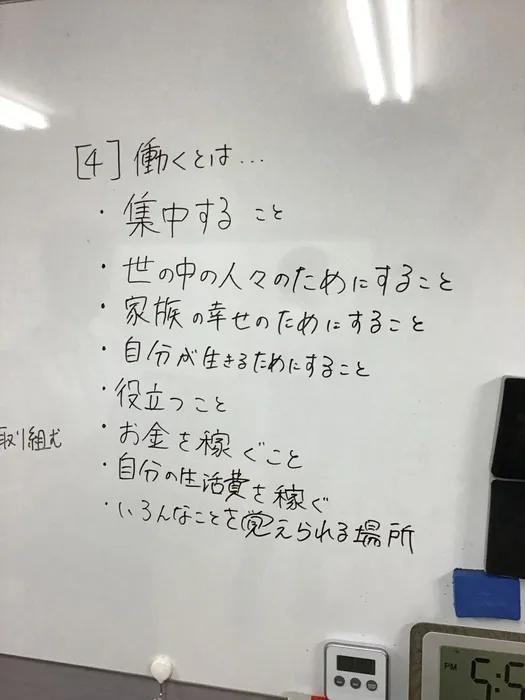 [4] 働くとは...
・集中すること
・世の中の人々のためにすること
・家族の幸せのためにすること
・自分が生きるためにすること
・役立つこと
・お金を稼ぐこと
・自分の生活費を稼ぐ
・いろんなことを覚えられる場所
取り組む
PM